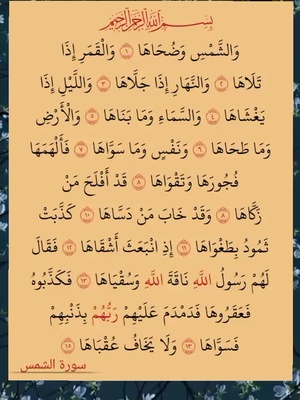 بِسْمِ اللَّهِ الرَّحْمَٰنِ الرَّحِيمِ
وَالشَّمْسِ وَضُحَاهَا ١ وَالْقَمَرِ إِذَا
تَلَاهَا ٢ وَالنَّهَارِ إِذَا جَلَّاهَا ٣ وَاللَّيْلِ إِذَا
يَغْشَاهَا ٤ وَالسَّمَاءِ وَمَا بَنَاهَا ٥ وَالْأَرْضِ
وَمَا طَحَاهَا ٦ وَنَفْسٍ وَمَا سَوَّاهَا ٧ فَأَلْهَمَهَا
فُجُورَهَا وَتَقْوَاهَا ٨ قَدْ أَفْلَحَ مَنْ
زَكَّاهَا ٩ وَقَدْ خَابَ مَنْ دَسَّاهَا ١٠ كَذَّبَتْ
ثَمُودُ بِطَغْوَاهَا ١١ إِذِ انْبَعَثَ أَشْقَاهَا ١٢ فَقَالَ
لَهُمْ رَسُولُ اللَّهِ نَاقَةَ اللَّهِ وَسُقْيَاهَا ١٣ فَكَذَّبُوهُ
فَعَقَرُوهَا فَدَمْدَمَ عَلَيْهِمْ رَبُّهُمْ بِذَنْبِهِمْ
فَسَوَّاهَا ١٤ وَلَا يَخَافُ عُقْبَاهَا ١٥
سورة الشمس